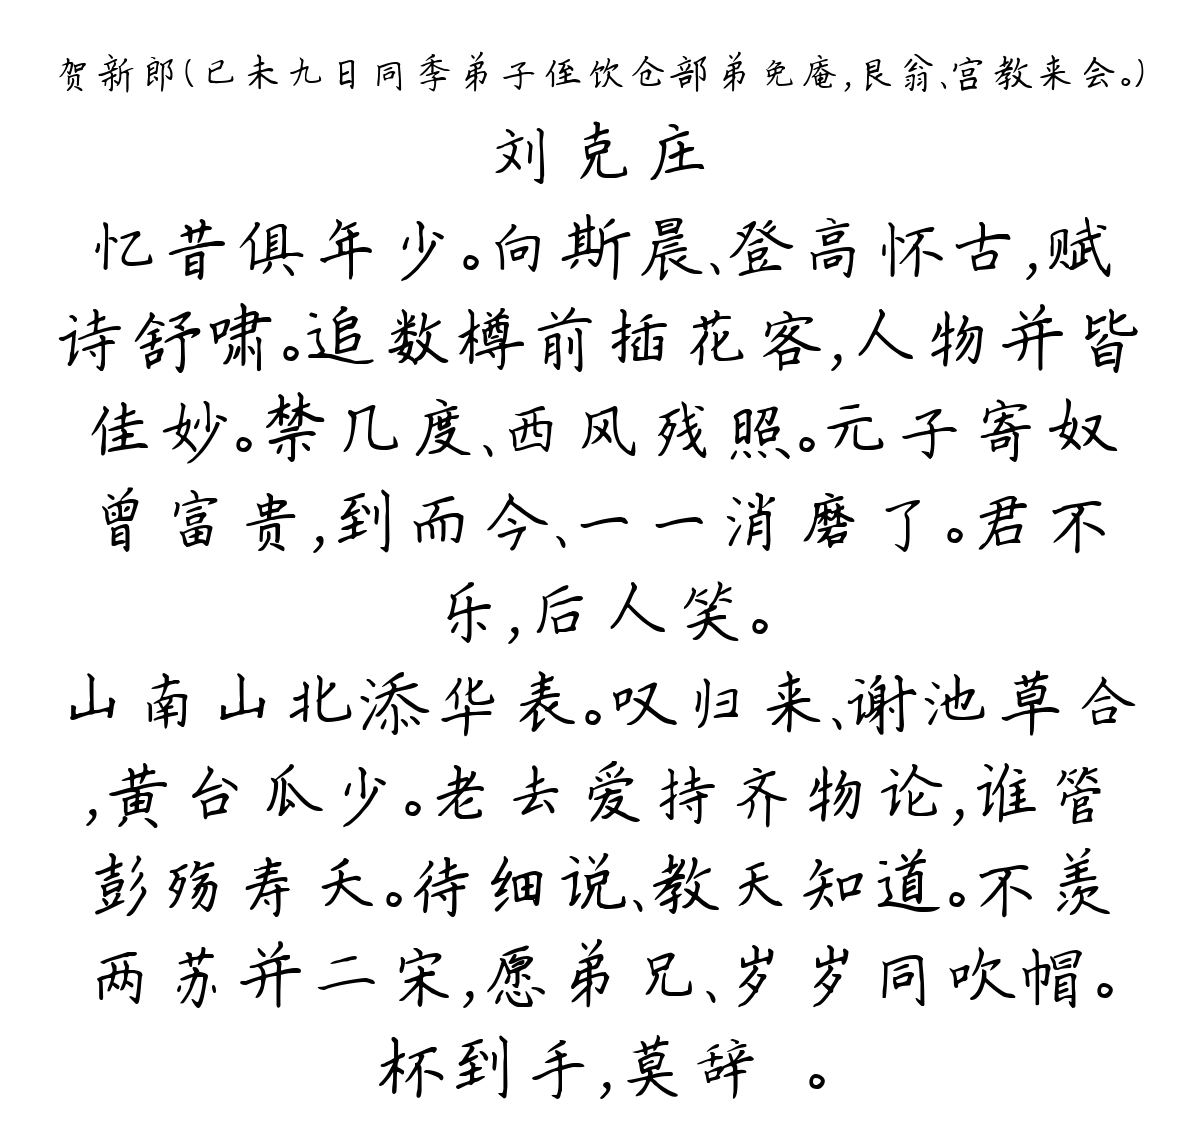 贺新郎(已未九日同季弟子侄饮仓部弟免庵,艮翁、宫教来会。)
刘克庄
忆昔俱年少。向斯晨、登高怀古,赋
诗舒啸。追数樽前插花客,人物并皆
佳妙。禁几度、西风残照。元子寄奴
曾富贵,到而今、一一消磨了。君不
乐,后人笑。
山南山北添华表。叹归来、谢池草合
,黄台瓜少。老去爱持齐物论,谁管
彭殇寿夭。待细说、教天知道。不羡
两苏并二宋,愿弟兄、岁岁同吹帽。
杯到手,莫辞 。